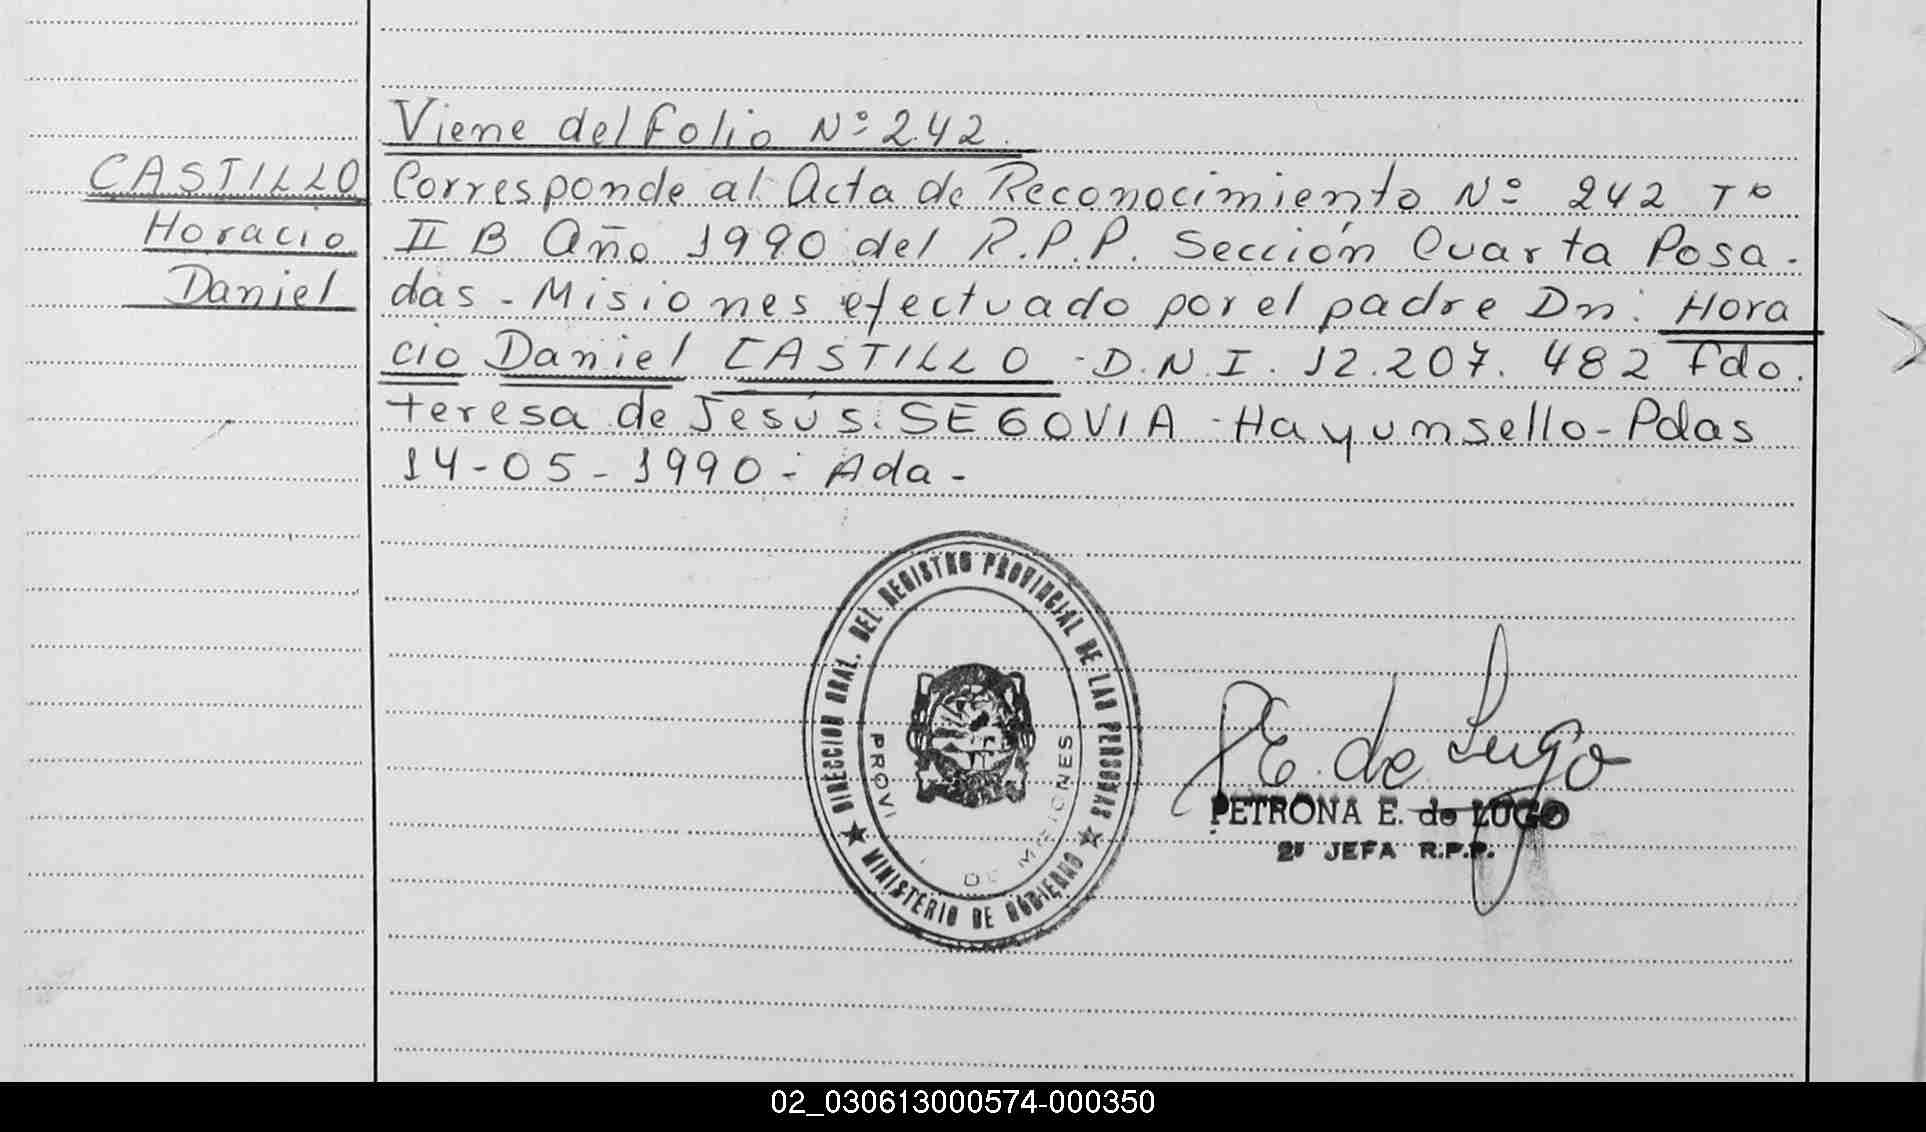 Viene del folio Nº 242.
CASTILLO
Horacio
Daniel
Corresponde al Acta de Reconocimiento Nº 242 Tº
II B Año 1990 del R.P.P. Sección Cuarta Posa-
das - Misiones efectuado por el padre Dn: Hora
cio Daniel CASTILLO - D.N.I. 12.207.482 fdo.
teresa de Jesús: SEGOVIA - Hay un sello - Pdas
14-05-1990 - Ada -
DIRECCION GRAL. DEL REGISTRO PROVINCIAL DE LAS PERSONAS
PROVI
DE MISIONES
★ MINISTERIO DE GOBIERNO ★
P E. de Lugo
PETRONA E. de LUGO
2ª JEFA R.P.P.
02_030613000574-000350